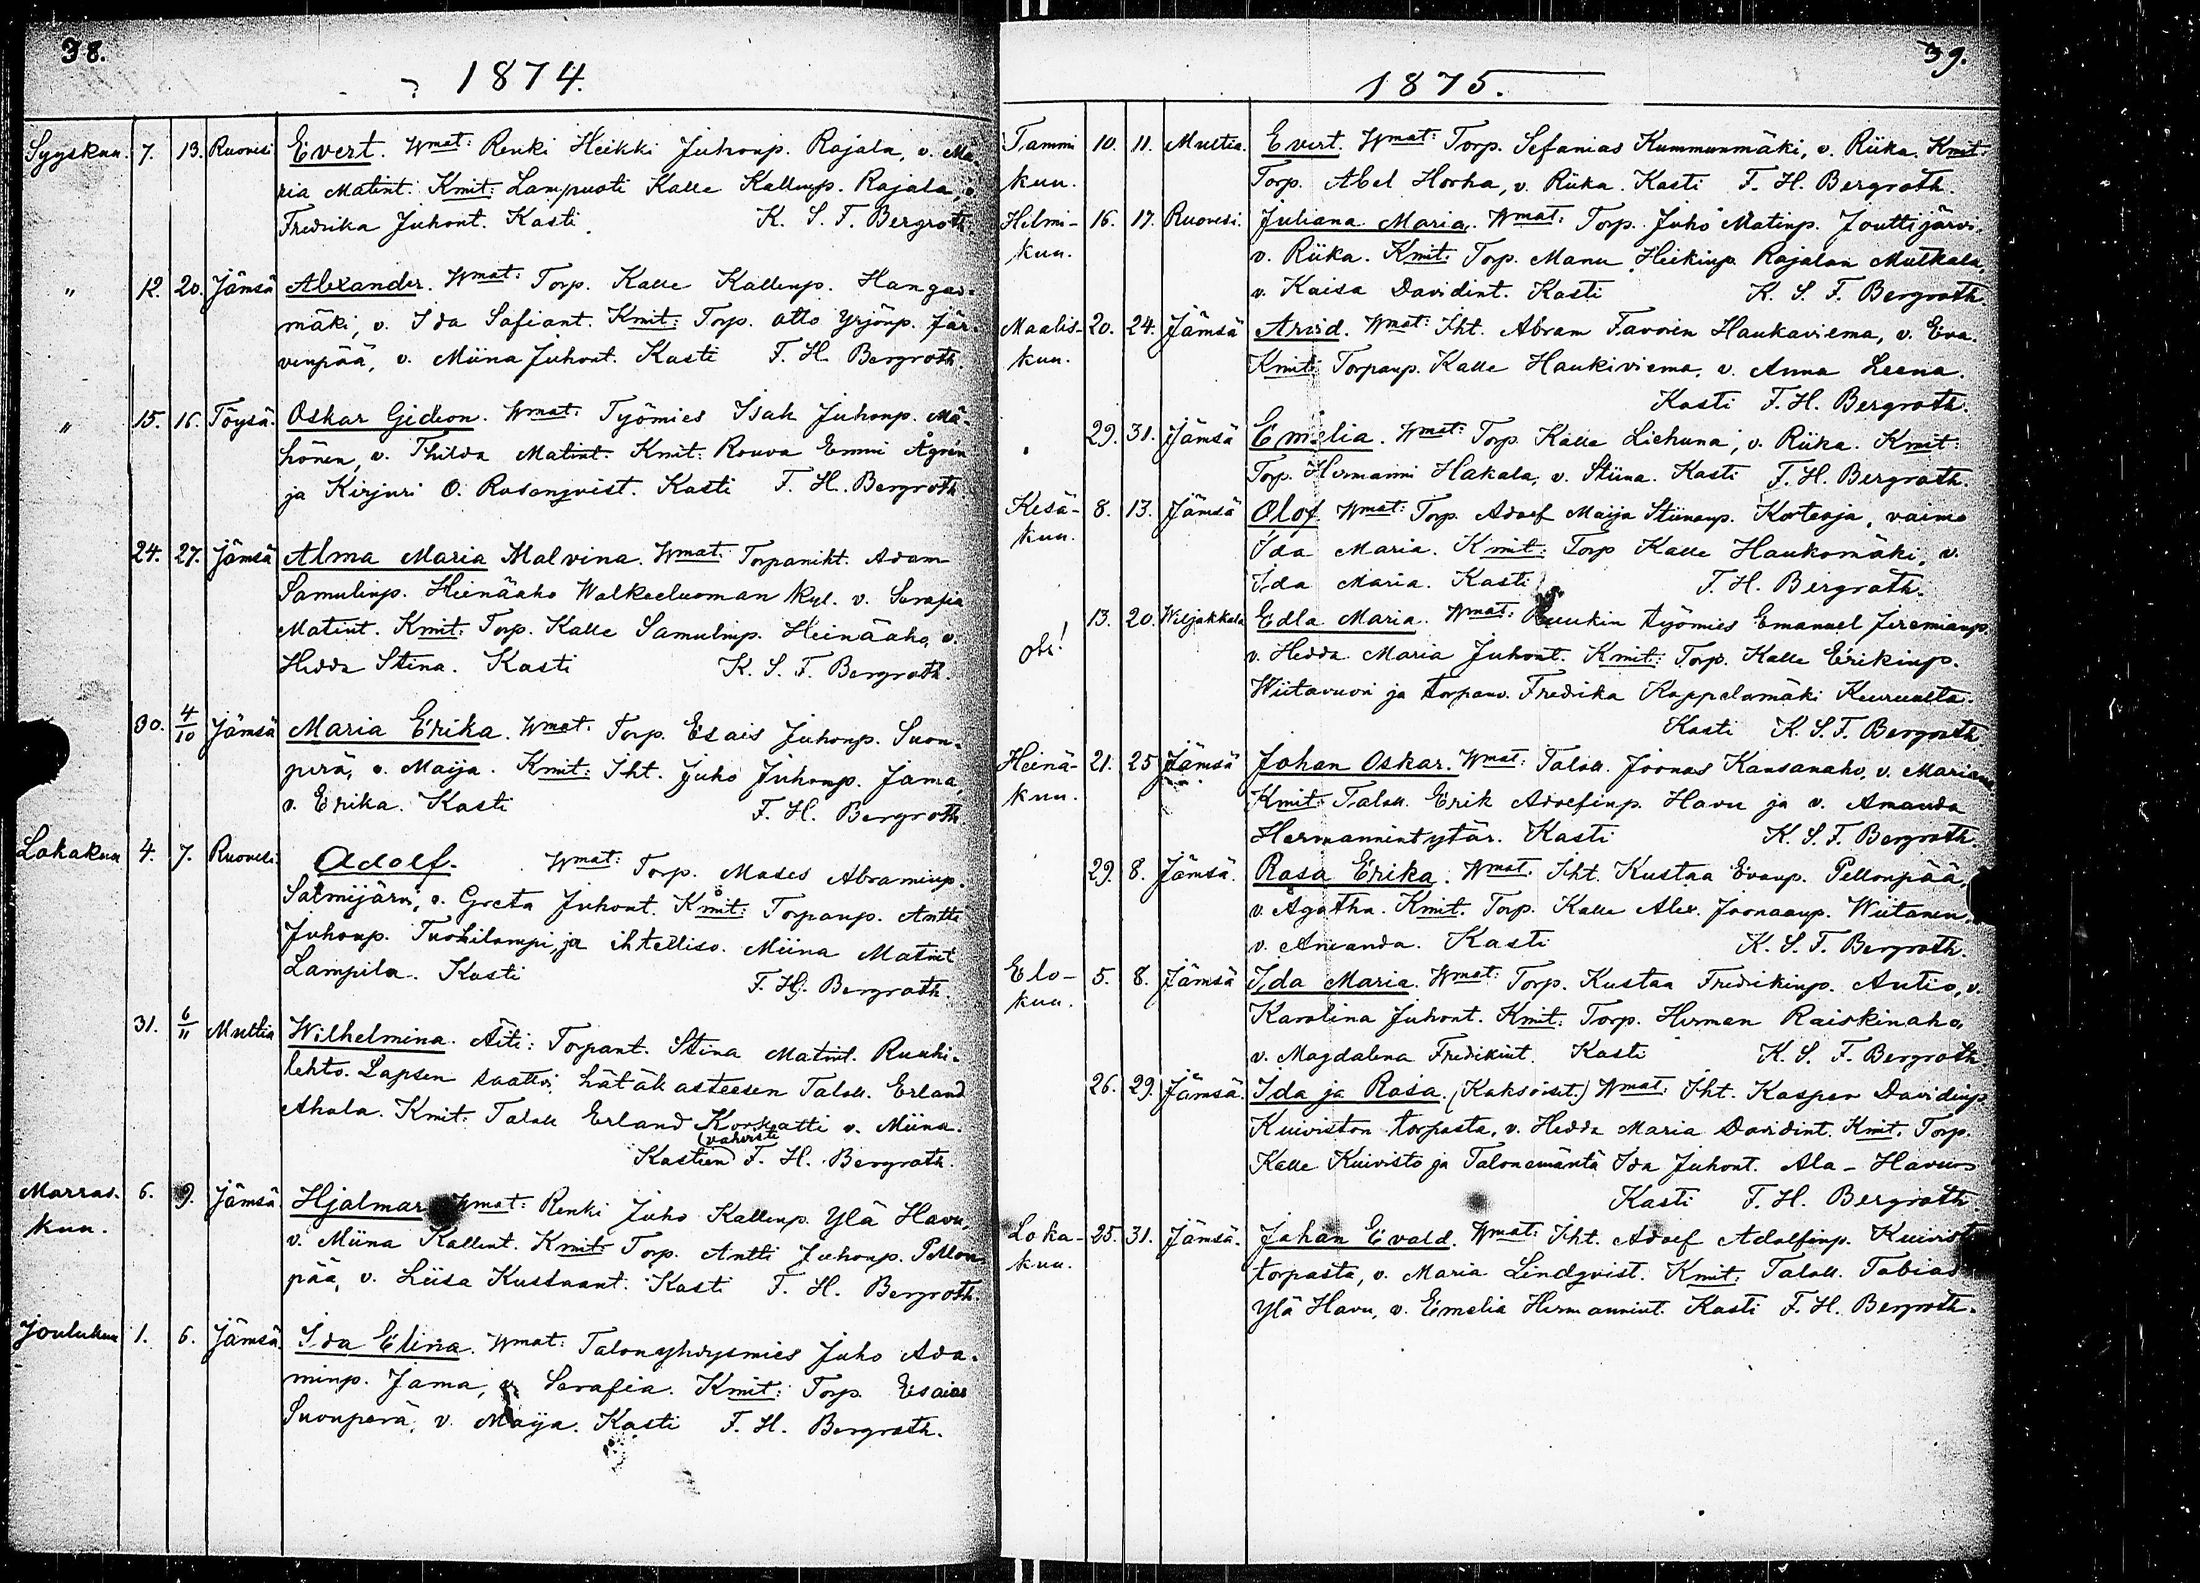 38.
1874.
Syyskuu. 7. 13. Ruovesi Evert. Wmat: Renki Heikki Juhonp. Rajala, v. Ma-
ria Matint. Kmit: Lampuoti Kalle Kallenp. Rajala, v.
Fredrika Juhont. Kasti K. S. F. Bergroth.
" 12. 20. Jämsä Alexander. Wmat: Torp. Kalle Kallenp. Hangas-
mäki, v. Ida Safiant. Kmit: Torp. Otto Yrjönp. Jär-
venpää, v. Miina Juhont. Kasti F. H. Bergroth.
" 15. 16. Töysä. Oskar Gideon. Wmat: Työmies Isak Juhonp. Mä-
hönen, v. Thilda Matint. Kmit: Rouva Emmi Ågrén
ja Kirjuri O. Rosenqvist. Kasti F. H. Bergroth
24. 27. Jämsä Alma Maria Malvina. Wmat: Torpanikt. Adam
Samulinp. Heinäaho Walkeeluoman kyl. v. Serafia
Matint. Kmit: Torp. Kalle Samulinp. Heinäaho, v.
Hedda Stina. Kasti K. S. F. Bergroth.
30. 4/10 Jämsä Maria Erika. Wmat: Torp. Esais Juhonp. Suon-
perä, v. Maija. Kmit: Iht. Juho Juhonp. Jama,
v. Erika. Kasti F. H. Bergroth.
Lokakuu 4. 7. Ruovesi. Adolf. Wmat: Torp. Moses Abraminp.
Salmijärvi, v. Greta Juhont. Kmit: Torpanp. Antti
Juhonp. Tuohilampi, ja ihtellisn. Miina Matint
Lampila. Kasti F. H. Bergroth.
31. 6/11 Multia Wilhelmina. Äiti: Torpant. Stina Matint. Ruuhi-
lehto. Lapsen saattoi hätäkasteesen Taloll. Erland
Ahola. Kmit: Taloll Erland Korkatti v. Miina.
(vahvisti
Kasteen) F. H. Bergroth.
Marras- 6. 9. Jämsä Hjalmar Wmat: Renki Juho Kallenp. Ylä Havu,
kuu. v. Miina Kallent. Kmit: Torp. Antti Juhonp. Pellon-
pää, v. Liisa Kustaant. Kasti F. H. Bergroth.
Joulukuu 1. 6. Jämsä. Ida Elina. Wmat: Talonyhdysmies Juho Ada-
minp. Jama, v. Serafia. Kmit: Torp. Esaias
Suonperä, v. Maija. Kasti F. H. Bergroth.
39.
1875.
Tammi 10. 11. Multia. Evert. Wmat: Torp. Sefanias Kummunmäki, v. Riika. Kmit:
kuu. Torp. Abel Horha, v. Riika. Kasti F. H. Bergroth.
Helmi- 16. 17. Ruovesi. Juliana Maria. Wmat: Torp. Juho Matinp. Jouttijärvi,
kuu. v. Riika. Kmit: Torp. Manu Heikinp. Rajalan Mutkala,
v. Kaisa Davidint. Kasti K. S. F. Bergroth.
Maalis- 20. 24. Jämsä Arvid. Wmat: Iht. Abram Favorin Haukaviema, v. Eva.
kuu. Kmit: Torpanp. Kalle Haukiviema, v. Anna Leena.
Kasti F. H. Bergroth.
29. 31. Jämsä Emelia. Wmat: Torp. Kalle Liehuna, v. Riika. Kmit:
Torp. Hermanni Hakala, v. Stiina. Kasti F. H. Bergroth.
Kesä- 8. 13. Jämsä Olof. Wmat: Torp. Adolf Maija Stiinanp. Korteoja, vaimo
kuu. Ida Maria. Kmit: Torp Kalle Haukomäki, v.
Ida Maria. Kasti F. H. Bergroth.
13. 20. Wiljakkala Edla Maria. Wmat: Ruukin työmies Emanuel Jeremianp.
v. Hedda Maria Juhont. Kmit: Torp. Kalle Erikinp.
Wiitavuori ja torpanv. Fredrika Kappelamäki Keuruulta.
Kasti K. S. F. Bergroth.
Heinä- 21. 25 Jämsä Johan Oskar. Wmat: Taloll. Joonas Kansanaho, v. Mariana
kuu. Kmit: Taloll. Erik Adolfinp. Havu ja v. Amanda
Hermannintytär. Kasti K. S. F. Bergroth.
29. 8. Jämsä. Rosa Erika. Wmat. Iht. Kustaa Evanp. Pellonpää,
v. Agatha. Kmit. Torp. Kalle Alex. Joonaanp. Wiitanen,
v. Amanda. Kasti K. S. F. Bergroth.
Elo- 5. 8. Jämsä Ida Maria. Wmat: Torp. Kustaa Fredrikinp. Autio, v.
kuu. Karolina Juhont. Kmit: Torp. Herman Raiskinaho,
v. Magdalena Fredikint. Kasti K. S. F. Bergroth.
26. 29. Jämsä. Ida ja Rosa. (Kaksoiset.) Wmat: Iht. Kasper Davidinp
Kuiviston torpasta, v. Hedda Maria Davidint. Kmit. Torp.
Kalle Kuivisto ja Talonemäntä Ida Juhont. Ala-Havu
Kasti F. H. Bergroth
Loka- 25. 31. Jämsä. Johan Evald. Wmat: Iht. Adolf Adolfinp. Kuivist
kuu. torpasta, v. Maria Lindqvist. Kmit: Taloll. Tobias
Ylä Havu, v. Emelia Hermannint. Kasti F. H. Bergroth.